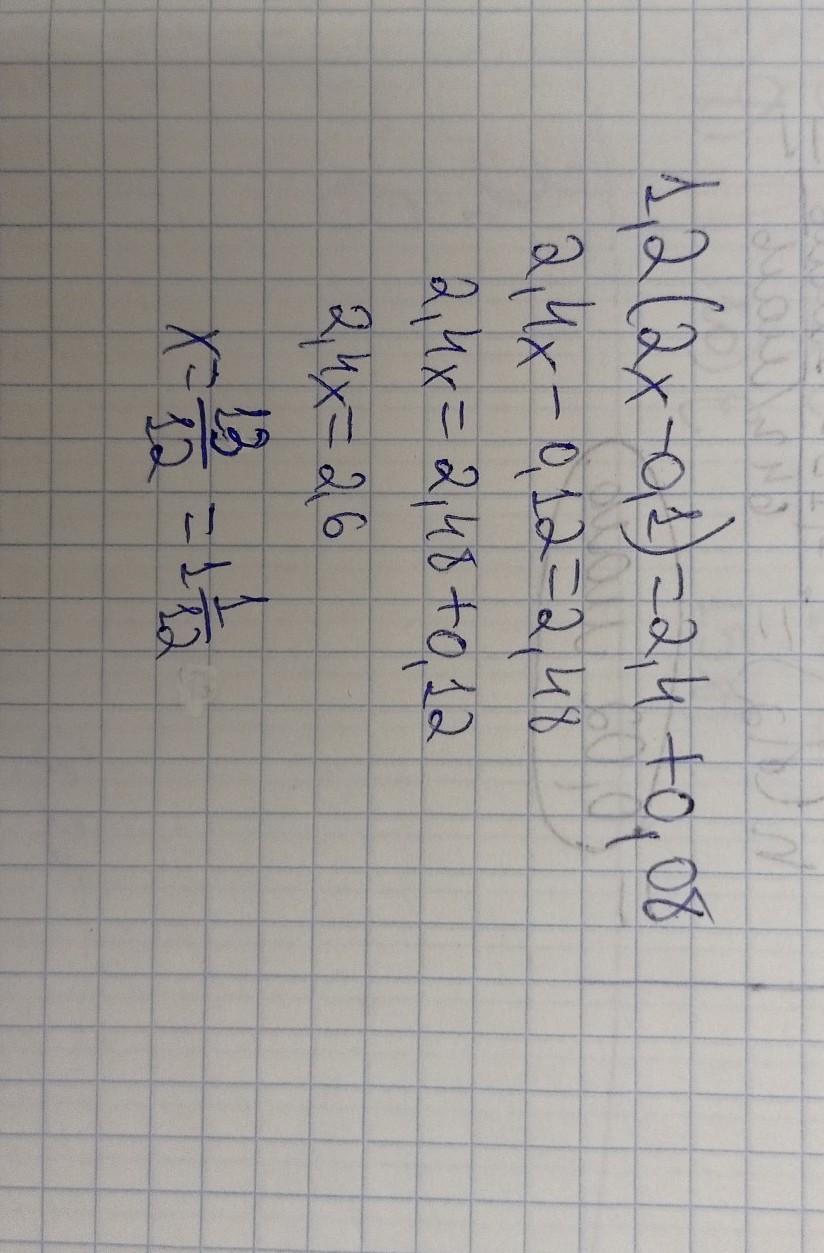 1,2(2x-0,1)=2,4+0,08
2,4x-0,12=2,48
2,4x=2,48+0,12
2,4x=2,6
x=13/12=1 1/12